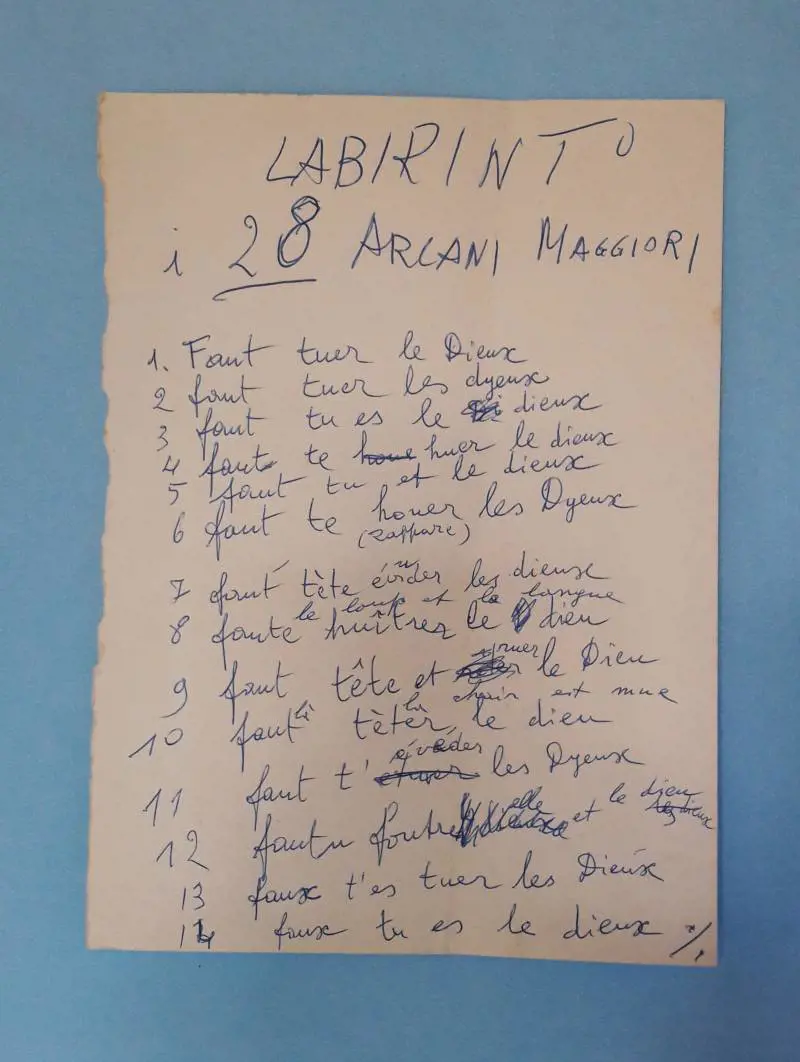 LABIRINTO
i 28 ARCANI MAGGIORI
1. Faut tuer le Dieux
2 faut tuer les dyeux
3 faut tu es le dieux
4 faut te huer le dieux
5 faut tu et le dieux
6 faut te houer les Dyeux
(zappare)
7 faut tète évider les dieux
le loup et la langue
8 faute huîtrez le dieu
9 faut tête et truer le Dieu
la chair est mue
10 faut tèter, le dieu
évader
11 faut t' les Dyeux
12 fautu foutre elle et le dieu
13 faux t'es tuer les Dieux
14 faux tu es le dieux ./.